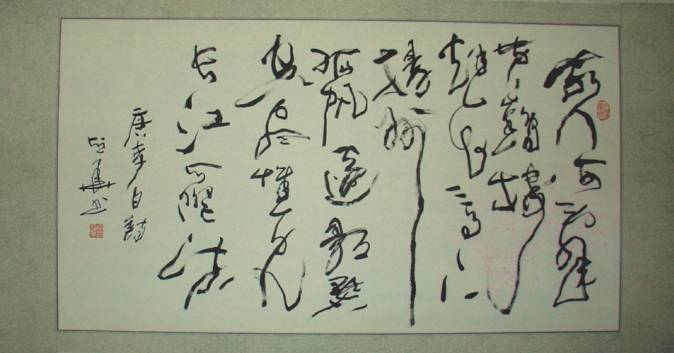 故人西辭
黄鶴樓
烟花三月下
揚州
孤帆遠影碧
空盡惟見
長江天際流
唐李白詩
華书